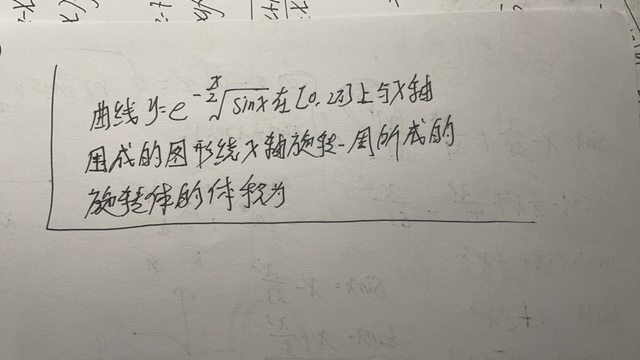 曲线 y=e^{-\frac{x}{2}}\sqrt{sinx} 在 [0, 2π] 上与 X 轴
围成的图形绕 X 轴旋转一周所成的
旋转体的体积为